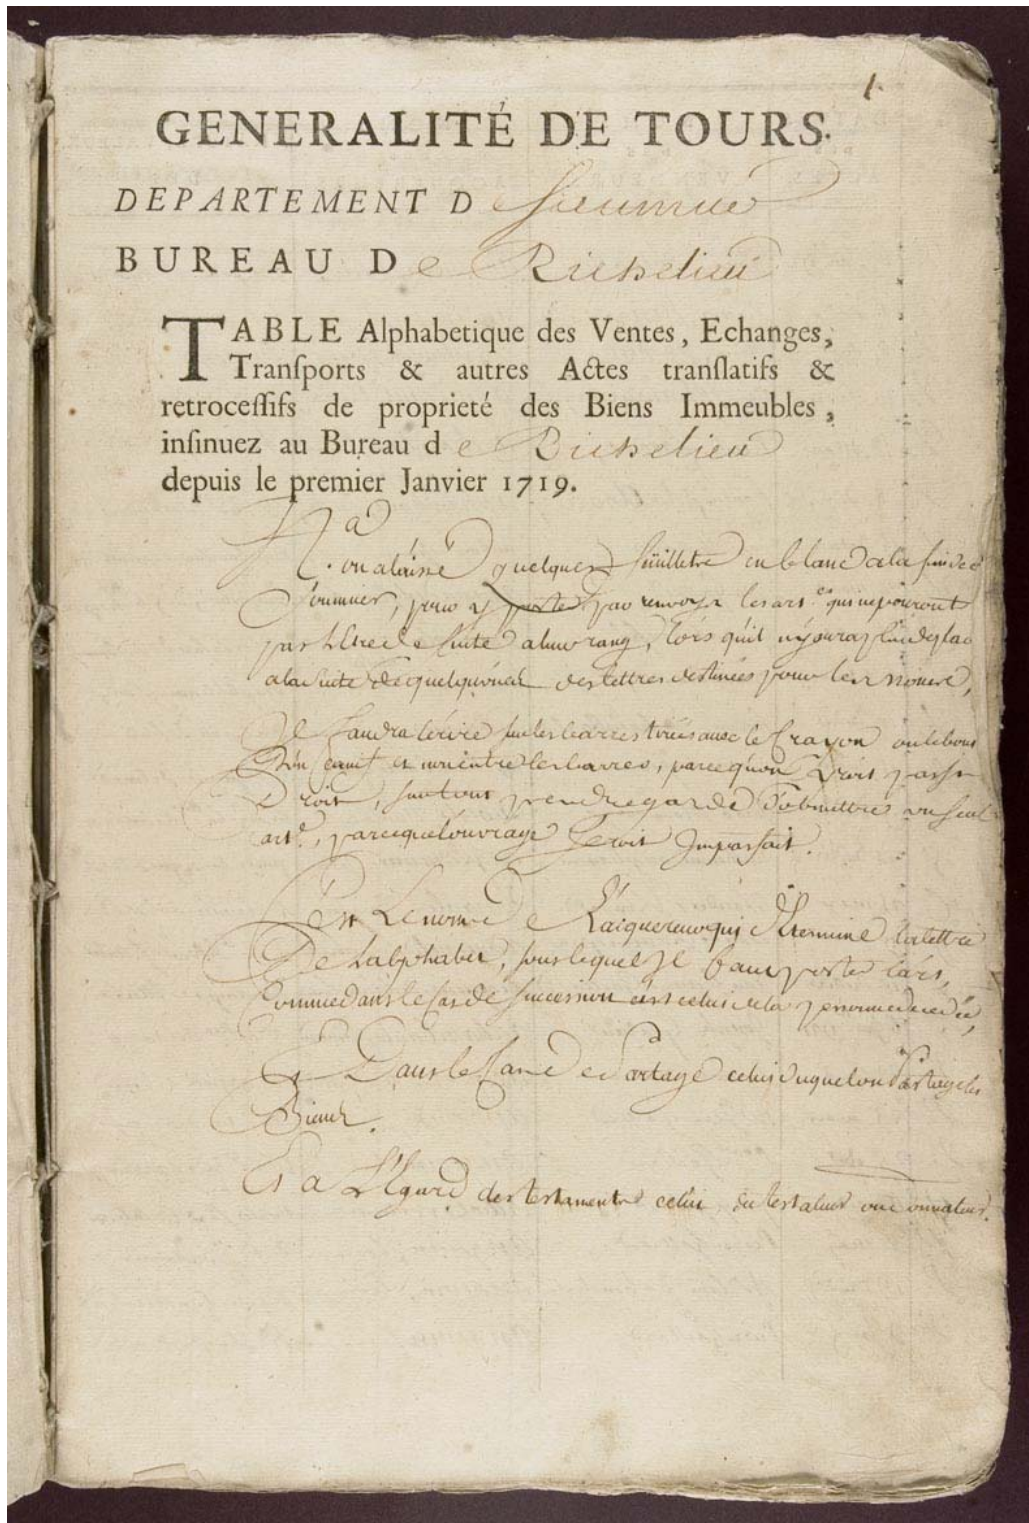 1.
GENERALITÉ DE TOURS.
DEPARTEMENT D Saumur
BUREAU De Richelieu
TABLE Alphabetique des Ventes, Echanges,
Transports & autres Actes translatifs &
retrocessifs de proprieté des Biens Immeubles,
insinuez au Bureau de Richelieu
depuis le premier Janvier 1719.
Na
on a laissé quelques feüillets en blanc a la fin de ce
pour y porter par renvoy les art.es qui ne pouront
pas de suite a leur rang, lors qu'il n'y aura plus de place
a la suite de quelqu'une des lettres destinées pour les
Il faudra écrire sur les barres tirées avec le Crayon ou le bout
et non entre les barres, parce qu'on
Droit, sur tout prendre garde d'obmettre un seul
art.e, parce que l'ouvrage seroit Imparfait.
C'est Le nom de L'aquereur qui determine la lettre
De L'alphabet, sous lequel Il faut porter l'art.,
Comme dans le Cas de succession c'est celui de la personne decedée,
Et Dans le Cas de Partage celui duquel on Partage les
Biens.
Et a L'Egard des testaments celui du testateur ou donnateur.